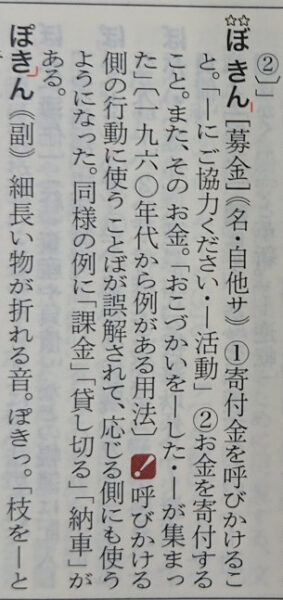 ②〕」
☆☆ぼきん［募金］《名・自他サ》①寄付金を呼びかけるこ
と。「―にご協力ください・―活動」②お金を寄付する
こと。また、そのお金。「おこづかいを―した・―が集まっ
た」〔一九六〇年代から例がある用法〕❗呼びかける
側の行動に使うことばが誤解されて、応じる側にも使う
ようになった。同様の例に「課金」「貸し切る」「納車」が
ある。
ぽきん《副》細長い物が折れる音。ぽきっ。「枝を―と